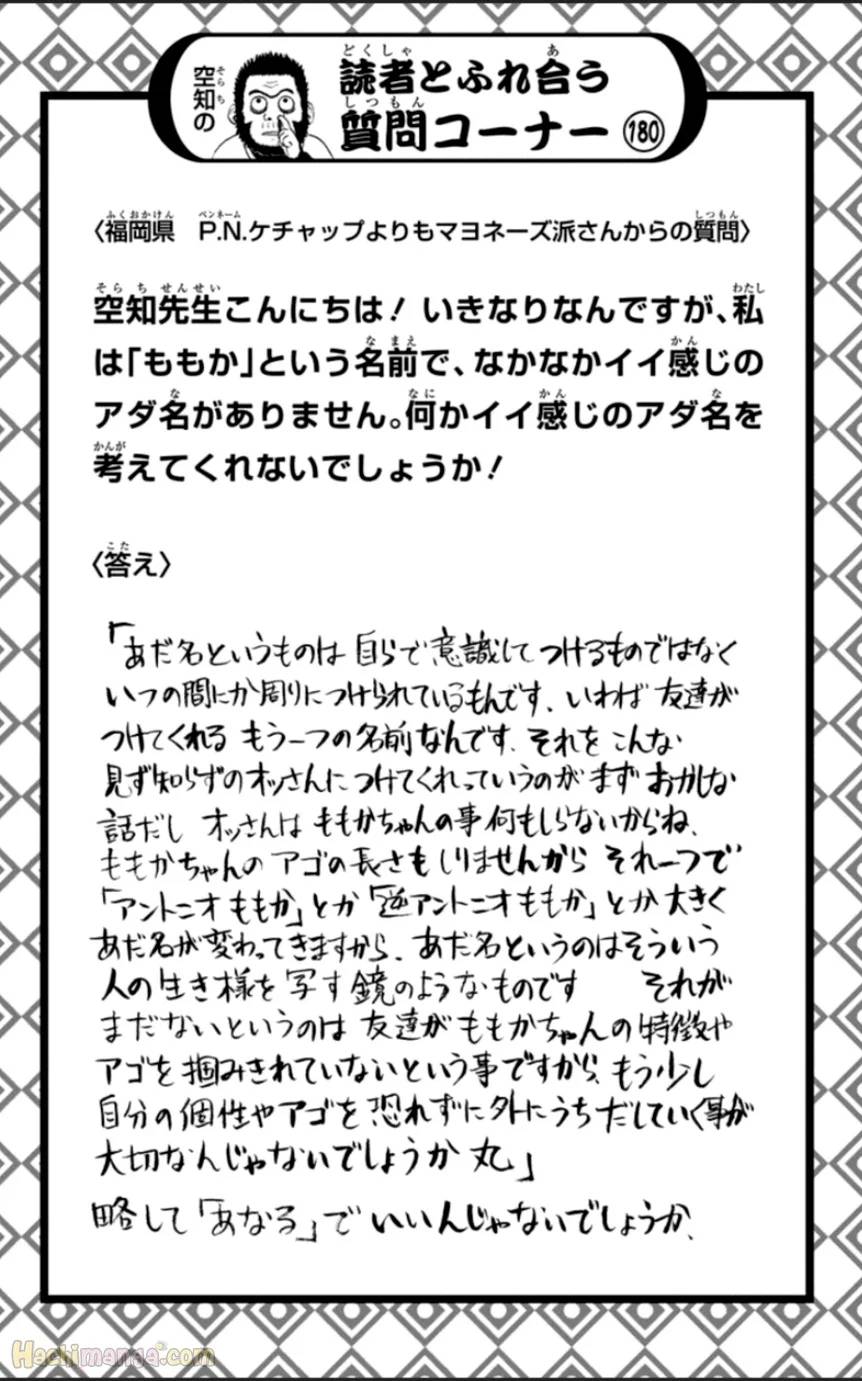 空知の
読者とふれ合う
質問コーナー 180
〈福岡県 P.N.ケチャップよりもマヨネーズ派さんからの質問〉
空知先生こんにちは! いきなりなんですが、私
は「ももか」という名前で、なかなかイイ感じの
アダ名がありません。何かイイ感じのアダ名を
考えてくれないでしょうか!
〈答え〉
「あだ名というものは自らで意識してつけるものではなく
いつの間にか周りにつけられているもんです、いわば友達が
つけてくれるもう一つの名前なんです、それをこんな
見ず知らずのオッさんにつけてくれっていうのがまずおかしな
話だし オッさんはももかちゃんの事何もしらないからね、
ももかちゃんのアゴの長さもしりませんから それ一つで
「アントニオももか」とか「逆アントニオももか」とか大きく
あだ名が変わってきますから、あだ名というのはそういう
人の生き様を写す鏡のようなものです それが
まだないというのは友達がももかちゃんの特徴や
アゴを掴みきれていないという事ですから、もう少し
自分の個性やアゴを恐れずに外にうちだしていく事が
大切なんじゃないでしょうか 丸」
略して「あなる」でいいんじゃないでしょうか、
Hachimanga.com